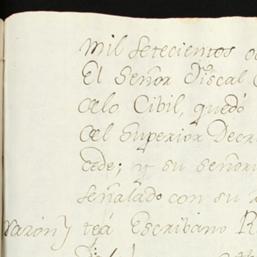 Mil Setecientos o
El Señor Fiscal
de lo Cibil, quedó
del Superior Decr
cede; y su señori
señalado con su
varón} tea Escribano R